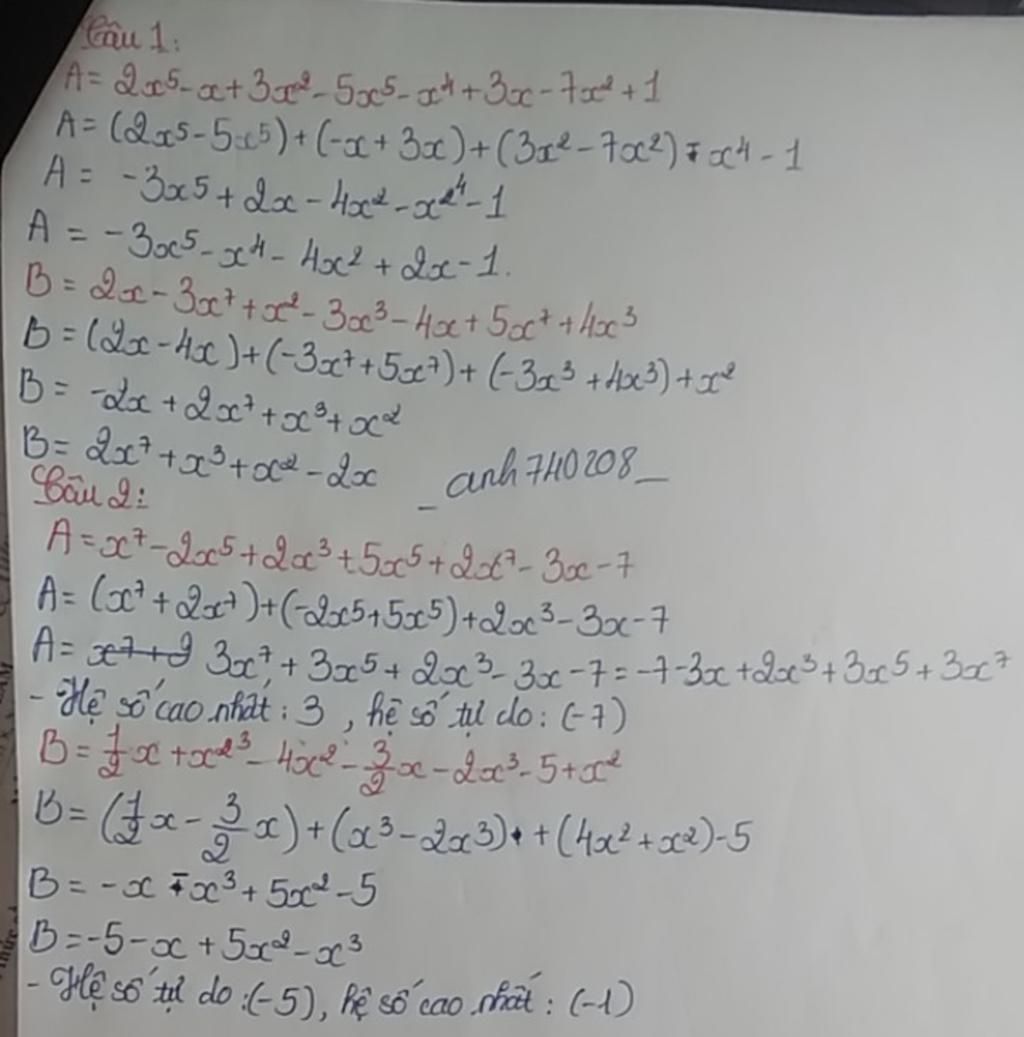 Câu 1:
A = 2x⁵ - x + 3x² - 5x⁵ - x⁴ + 3x - 7x² + 1
A = (2x⁵ - 5x⁵) + (-x + 3x) + (3x² - 7x²) - x⁴ - 1
A = -3x⁵ + 2x - 4x² - x⁴ - 1
A = -3x⁵ - x⁴ - 4x² + 2x - 1.
B = 2x - 3x⁷ + x² - 3x³ - 4x + 5x⁷ + 4x³
B = (2x - 4x) + (-3x⁷ + 5x⁷) + (-3x³ + 4x³) + x²
B = -2x + 2x⁷ + x³ + x²
B = 2x⁷ + x³ + x² - 2x _anh740208_
Câu 2:
A = x⁷ - 2x⁵ + 2x³ + 5x⁵ + 2x⁷ - 3x - 7
A = (x⁷ + 2x⁷) + (-2x⁵ + 5x⁵) + 2x³ - 3x - 7
A = 3x⁷ + 3x⁵ + 2x³ - 3x - 7 = -7 - 3x + 2x³ + 3x⁵ + 3x⁷
- Hệ số cao nhất : 3 , hệ số tự do : (-7)
B = 1/2x + x³ - 4x² - 3/2x - 2x³ - 5 + x²
B = (1/2x - 3/2x) + (x³ - 2x³) + (4x² + x²) - 5
B = -x - x³ + 5x² - 5
B = -5 - x + 5x² - x³
- Hệ số tự do : (-5), hệ số cao nhất : (-1)